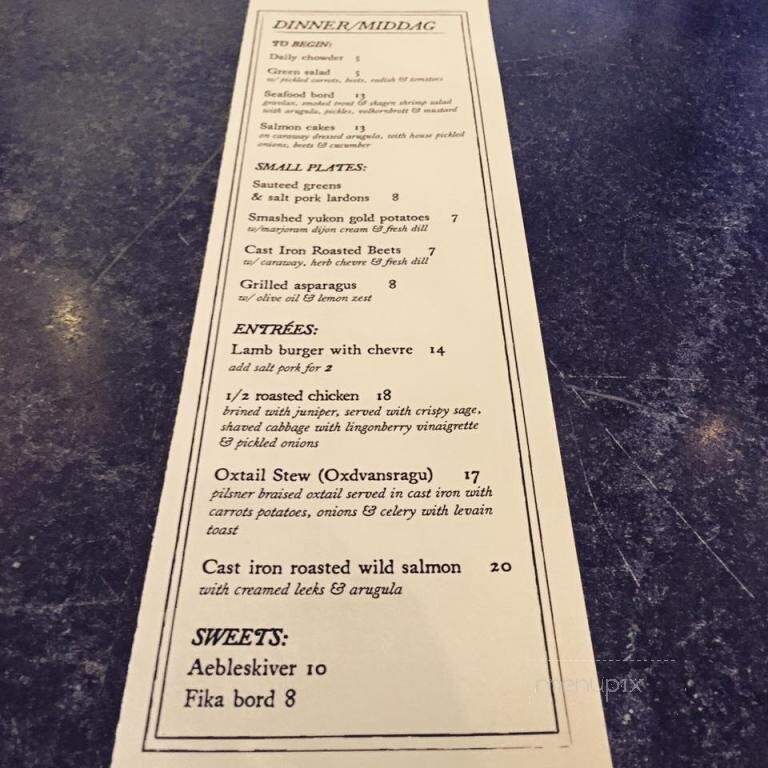 DINNER/MIDDAG
TO BEGIN:
Daily chowder 5
Green salad 5
w/ pickled carrots, beets, radish & tomatoes
Seafood bord 13
gravlax, smoked trout & skagen shrimp salad
with arugula, pickles, volkornbrott & mustard
Salmon cakes 13
on caraway dressed arugula, with house pickled
onions, beets & cucumber
SMALL PLATES:
Sauteed greens
& salt pork lardons 8
Smashed yukon gold potatoes 7
w/marjoram dijon cream & fresh dill
Cast Iron Roasted Beets 7
w/ caraway, herb chevre & fresh dill
Grilled asparagus 8
w/ olive oil & lemon zest
ENTRÉES:
Lamb burger with chevre 14
add salt pork for 2
1/2 roasted chicken 18
brined with juniper, served with crispy sage,
shaved cabbage with lingonberry vinaigrette
& pickled onions
Oxtail Stew (Oxdvansragu) 17
pilsner braised oxtail served in cast iron with
carrots potatoes, onions & celery with levain
toast
Cast iron roasted wild salmon 20
with creamed leeks & arugula
SWEETS:
Aebleskiver 10
Fika bord 8
menupix